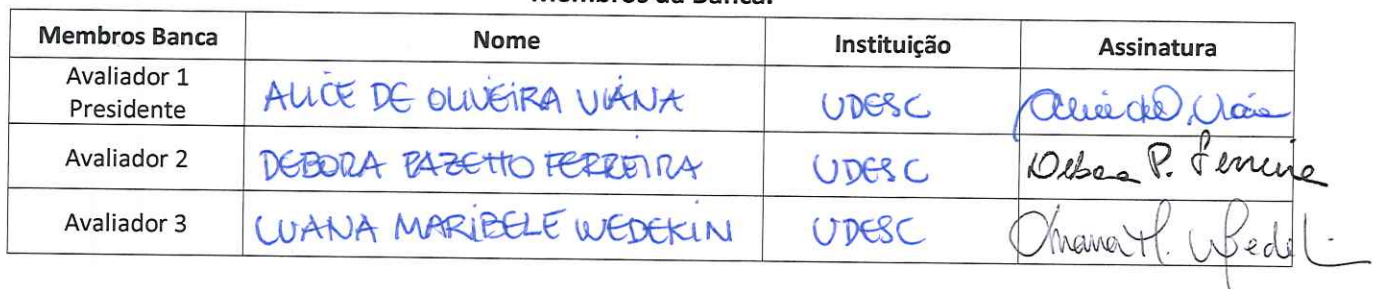 Membros da Banca:
Membros Banca Nome Instituição Assinatura
Avaliador 1
Presidente
ALICE DE OLIVEIRA VIANA UDESC Alice de O. Viana
Avaliador 2 DEBORA PAZETTO FERREIRA UDESC Debora P. Ferreira
Avaliador 3 LUANA MARIBELE WEDEKIN UDESC Luana M. Wedekin